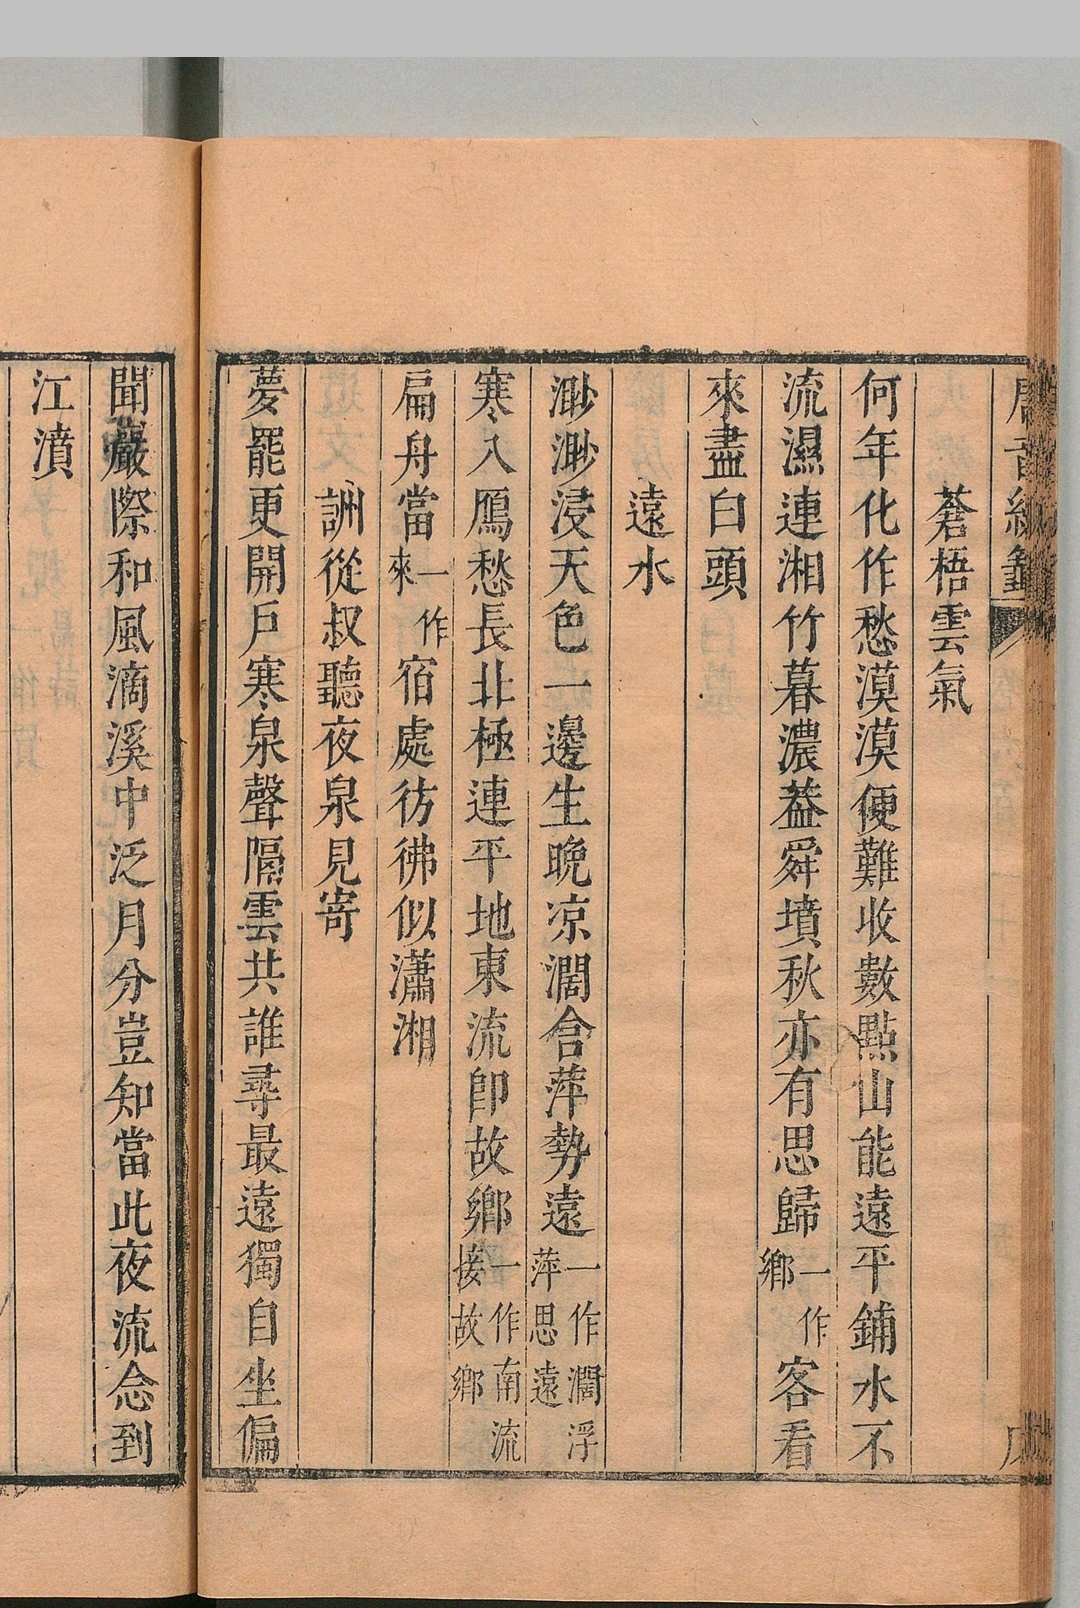 唐音統籤
蒼梧雲氣
何年化作愁漠漠便難收數點山能遠平鋪水不
流濕連湘竹暮濃葢舜墳秋亦有思歸一作鄉客看
來盡白頭
遠水
渺渺浸天色一邊生晚凉濶含萍勢遠一作濶浮萍思遠
寒入鴈愁長北極連平地東流卽故鄉一作南流接故鄉
扁舟當一作來宿處彷彿似瀟湘
詶從叔聽夜泉見寄
夢罷更開戶寒泉聲隔雲共誰尋最遠獨自坐偏
聞巖際和風滴溪中泛月分豈知當此夜流念到
江濆